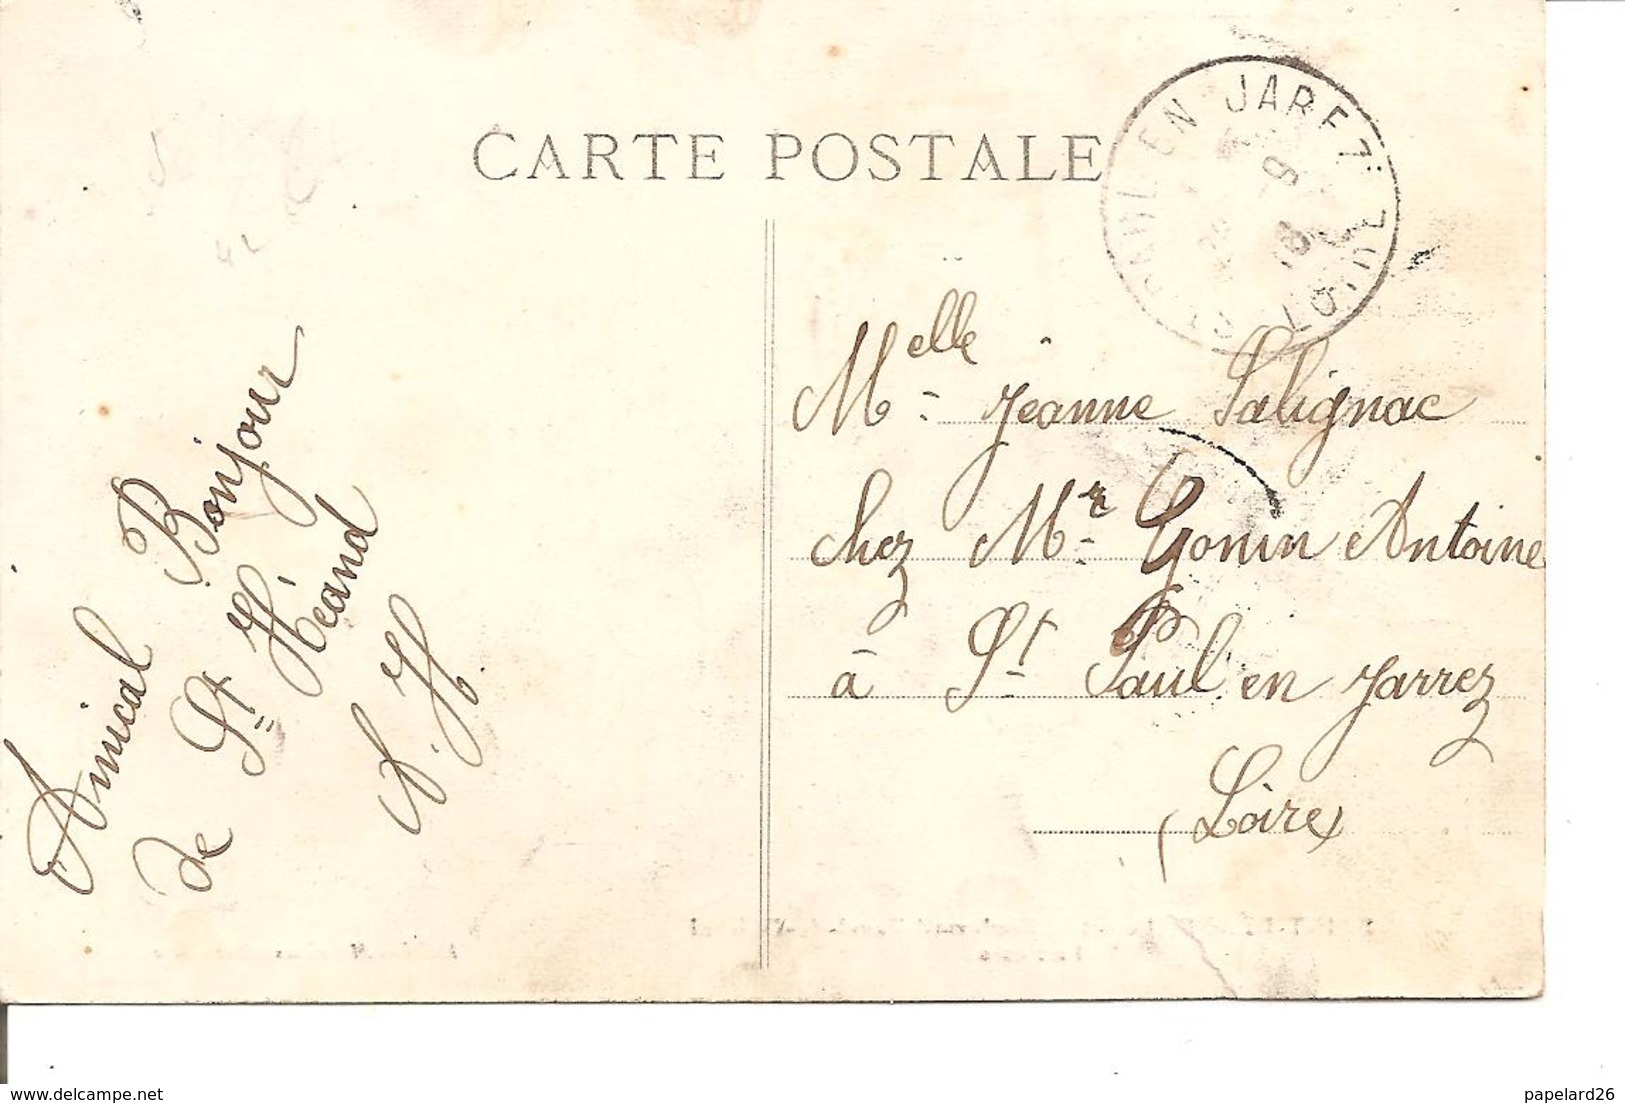 CARTE POSTALE
EN JAREZ
Amical Bonjour
de St Héand
A. H.
Melle Jeanne Salignac
chez Mr Gonin Antoine
à St Paul en Jarrez
(Loire)
www.delcampe.net
papelard26